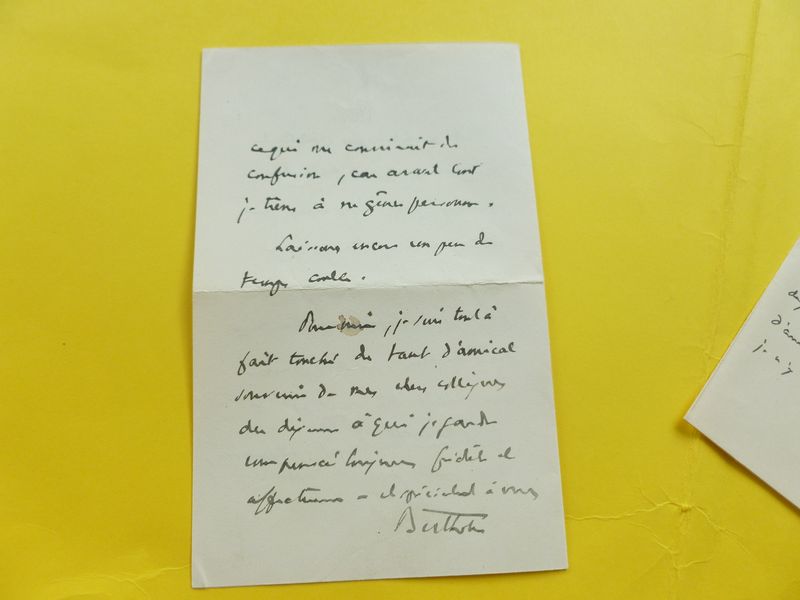 ce qui me couvrirait de
confusion, car avant tout
je tiens à ne gêner personne.
Laissons encore un peu de
temps couler.
Pour moi, je suis tout à
fait touché de tant d'amical
souvenir de mes chers collègues
des déjeuners à qui je garde
une pensée toujours fidèle et
affectueuse – et spécialement à vous